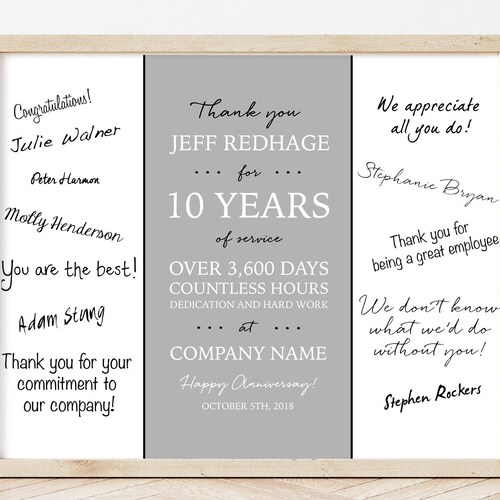 Congratulations!
Julie Walner
Peter Harmon
Molly Henderson
You are the best!
Adam Stang
Thank you for your
commitment to
our company!
Thank you
JEFF REDHAGE
for
10 YEARS
of service
OVER 3,600 DAYS
COUNTLESS HOURS
DEDICATION AND HARD WORK
at
COMPANY NAME
Happy Anniversay!
OCTOBER 5TH, 2018
We appreciate
all you do!
Stephanie Bryan
Thank you for
being a great employee
We don't know
what we'd do
without you!
Stephen Rockers